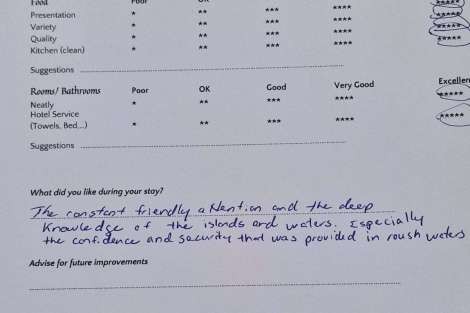 Food Poor OK
Presentation * ** *** **** *****
Variety * ** *** **** *****
Quality * ** *** **** *****
Kitchen (clean) * ** *** **** *****
Suggestions
Rooms/ Bathrooms Poor OK Good Very Good Excellen
Neatly * ** *** **** *****
Hotel Service
(Towels, Bed,...) * ** *** **** *****
Suggestions
What did you like during your stay?
The constant friendly attention and the deep
Knowledge of the islands and waters. Especially
the confidence and security that was provided in rough waters
Advise for future improvements